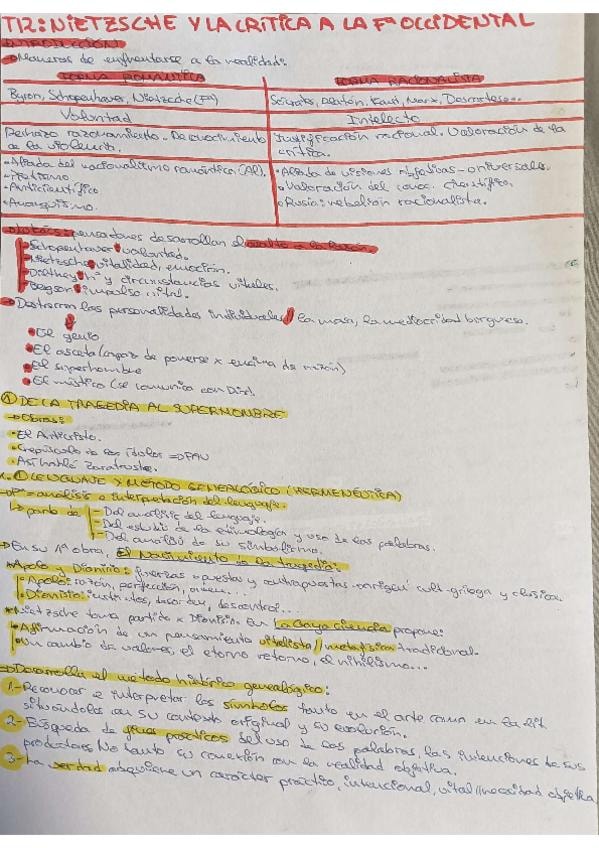 T12: NIETZSCHE Y LA CRÍTICA A LA Fª OCCIDENTAL
INTRODUCCIÓN
Maneras de enfrentarse a la realidad:
FORMA ROMÁNTICA
FORMA RACIONALISTA
Byron, Schopenhauer, Nietzsche (Fa)
Sócrates, Platón, Kant, Marx, Descartes...
Voluntad
Intelecto
Rechazo razonamiento - Desconocimiento de la violencia.
Justificación racional. Valoración de la crítica.
• Aliada del nacionalismo romántico (Al).
• Pietismo
• Anticientífico
• Anarquismo.
• Aliada de visiones objetivas - universales.
• Valoración del conoc. científico.
• Rusia: rebelión racionalista.
pensadores desarrollan
Schopenhauer: voluntad.
Nietzsche: vitalidad, emoción.
Dilthey: Hª y circunstancias vitales.
Bergson: impulso vital.
Destacan las personalidades individuales // la masa, la mediocridad burguesa.
• El genio
• El asceta (capaz de ponerse x encima de razón)
• El superhombre
• El místico (se comunica con Dios)
① DE LA TRAGEDIA AL SUPERHOMBRE
→ Obras:
• El Anticristo.
• Crepúsculo de los ídolos
• Así habló Zaratustra.
LENGUAJE Y MÉTODO GENEALÓGICO (HERMENÉUTICA)
análisis e interpretación del lenguaje.
↳ parte de
- Del análisis del lenguaje.
- Del estudio de la etimología y uso de las palabras.
- Del análisis de su simbolismo.
→ En su 1ª obra, El Nacimiento de la tragedia:
Apolo y Dionisio: fuerzas opuestas y contrapuestas - origen cult. griega y clásica.
Apolo: razón, perfección, orden...
Dionisio: instintos, desorden, descontrol...
Nietzsche toma partido x Dionisio. En La Gaya ciencia propone:
• Afirmación de un pensamiento vitalista // metafísica tradicional.
• Un cambio de valores, el eterno retorno, el nihilismo...
⇒ Desarrolla el método histórico genealógico:
1- Reconocer e interpretar los símbolos tanto en el arte como en la lit. situándolos en su contexto original y su evolución.
2- Búsqueda de fines prácticos del uso de las palabras, las intenciones de sus productores. No tanto su conexión con la realidad objetiva.
3- La verdad adquiere un carácter práctico, intencional, vital // necesidad objetiva